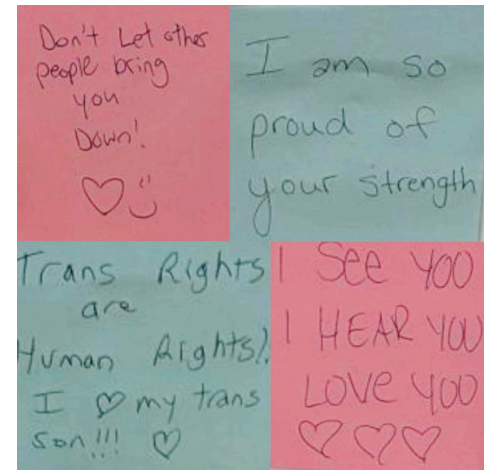 Don't Let other
people bring
you
Down!
♡ :)
I am so
proud of
your strength
Trans Rights
are
Human Rights!
I ♡ my trans
son!!! ♡
I See YOU
I HEAR YOU
LOVE YOU
♡♡♡